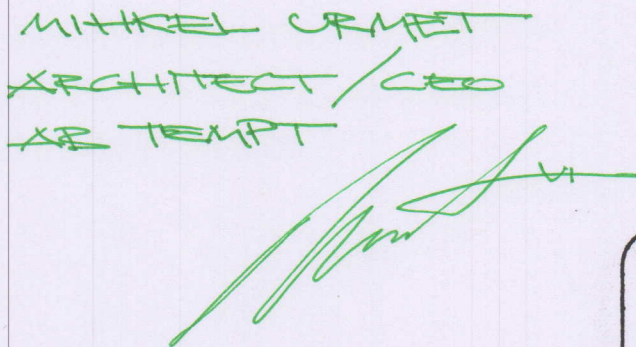 MIHKEL URMET
ARCHITECT / CEO
AB TEMPT